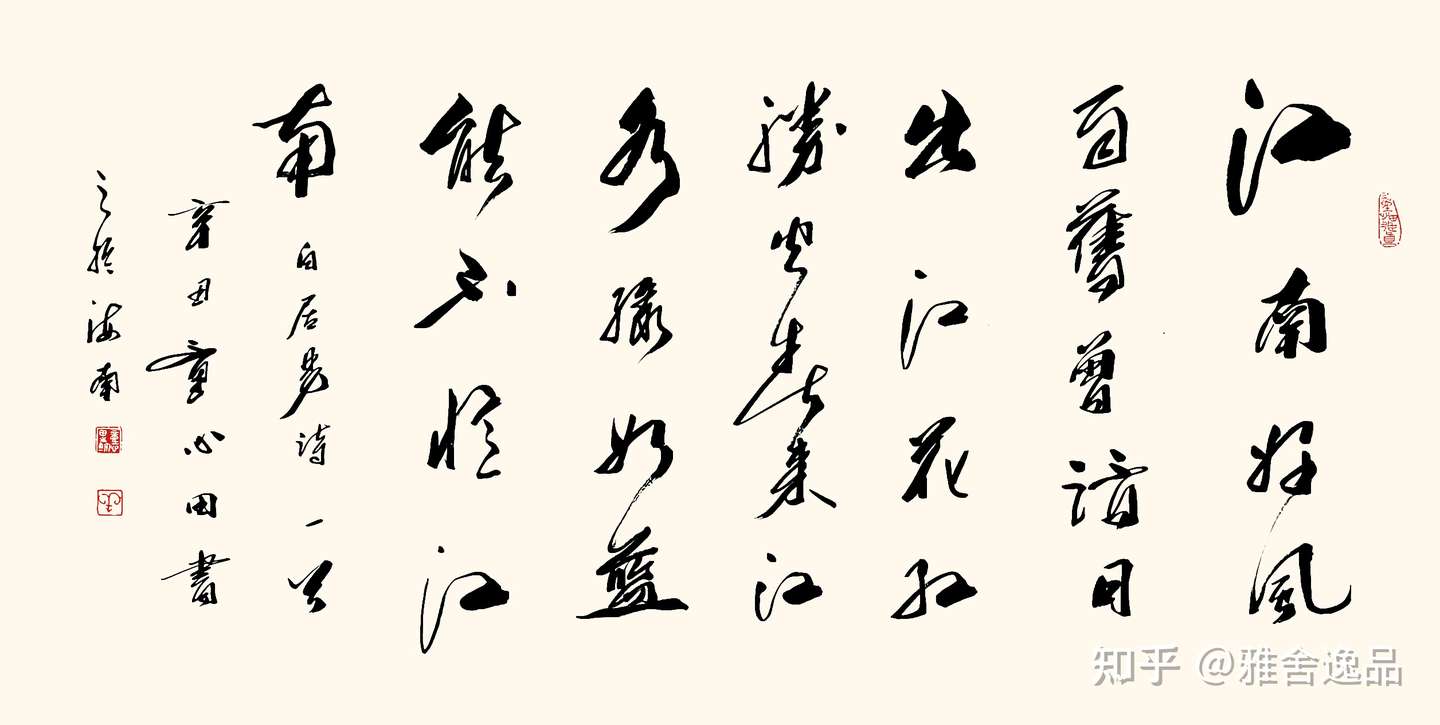 江南好風
百舊曾諳日
出江花紅
勝火春來江
水緑如藍
能不憶江
南 白居易詩一首
辛丑童心田書
之於海南
知乎 @雅舍逸品